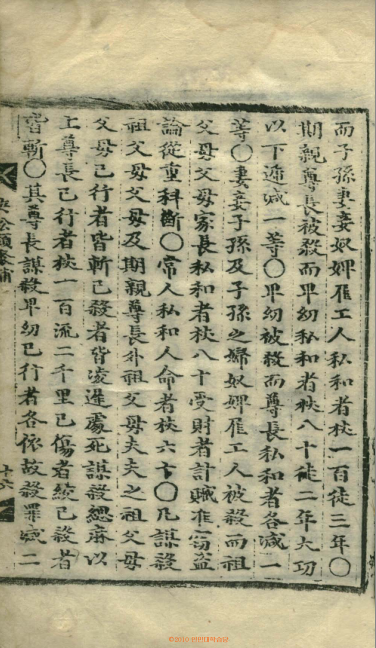 而子孫妻妾奴婢雇工人私和者杖一百徒三年〇
期親尊長被殺而卑幼私和者杖八十徒二年大功
以下遞减一等〇卑幼被殺而尊長私和者各减一
等〇妻妾子孫及子孫之婦奴婢雇工人被殺而祖
父母父母家長私和者杖八十受財者計贓准窃盜
論從重科斷〇常人私和人命者杖六十〇凡謀殺
祖父母父母及期親尊長外祖父母夫夫之祖父母
父母已行者皆斬已殺者皆凌遲處死謀殺緦麻以
上尊長已行者杖一百流二千里已傷者絞已殺者
皆斬〇其尊長謀殺卑幼已行者各依故殺罪减二
决訟類聚補
十六